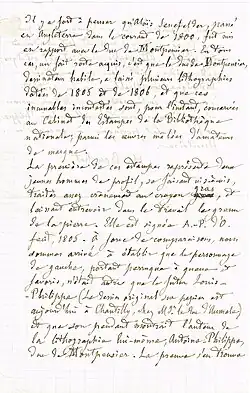 Il y a fort à penser qu'Aloïs Senefelder, passé
en Angleterre dans le courant de 1800, fut mis
en rapport avec le duc de Montpensier. En tous
cas, un fait reste acquis, c'est que le duc de Montpensier,
dessinateur habile, a laissé plusieurs lithographies
datées de 1805 et de 1806, et que ces
incunables incontestés sont, pour l'instant, conservés
au Cabinet des Estampes de la Bibliothèque
nationale, parmi les œuvres mêlées d'amateurs
de marque.
La première de ces estampes représente deux
jeunes hommes de profil, se faisant vis-à-vis,
traités avec crânerie au crayon gras et
laissant entrevoir dans le travail le grain
de la pierre. Elle est signée A. P. D.
fecit, 1805. À force de comparaisons, nous
sommes arrivé à établir que le personnage
de gauche, portant perruque à queue et
favoris, n'était autre que le futur Louis-
-Philippe (Le dessin original sur papier est
aujourd'hui à Chantilly, chez M. le duc d'Aumale)
et que son pendant montrait l'auteur de
la lithographie lui-même, Antoine-Philippe,
duc de Montpensier. La preuve s'en trouve